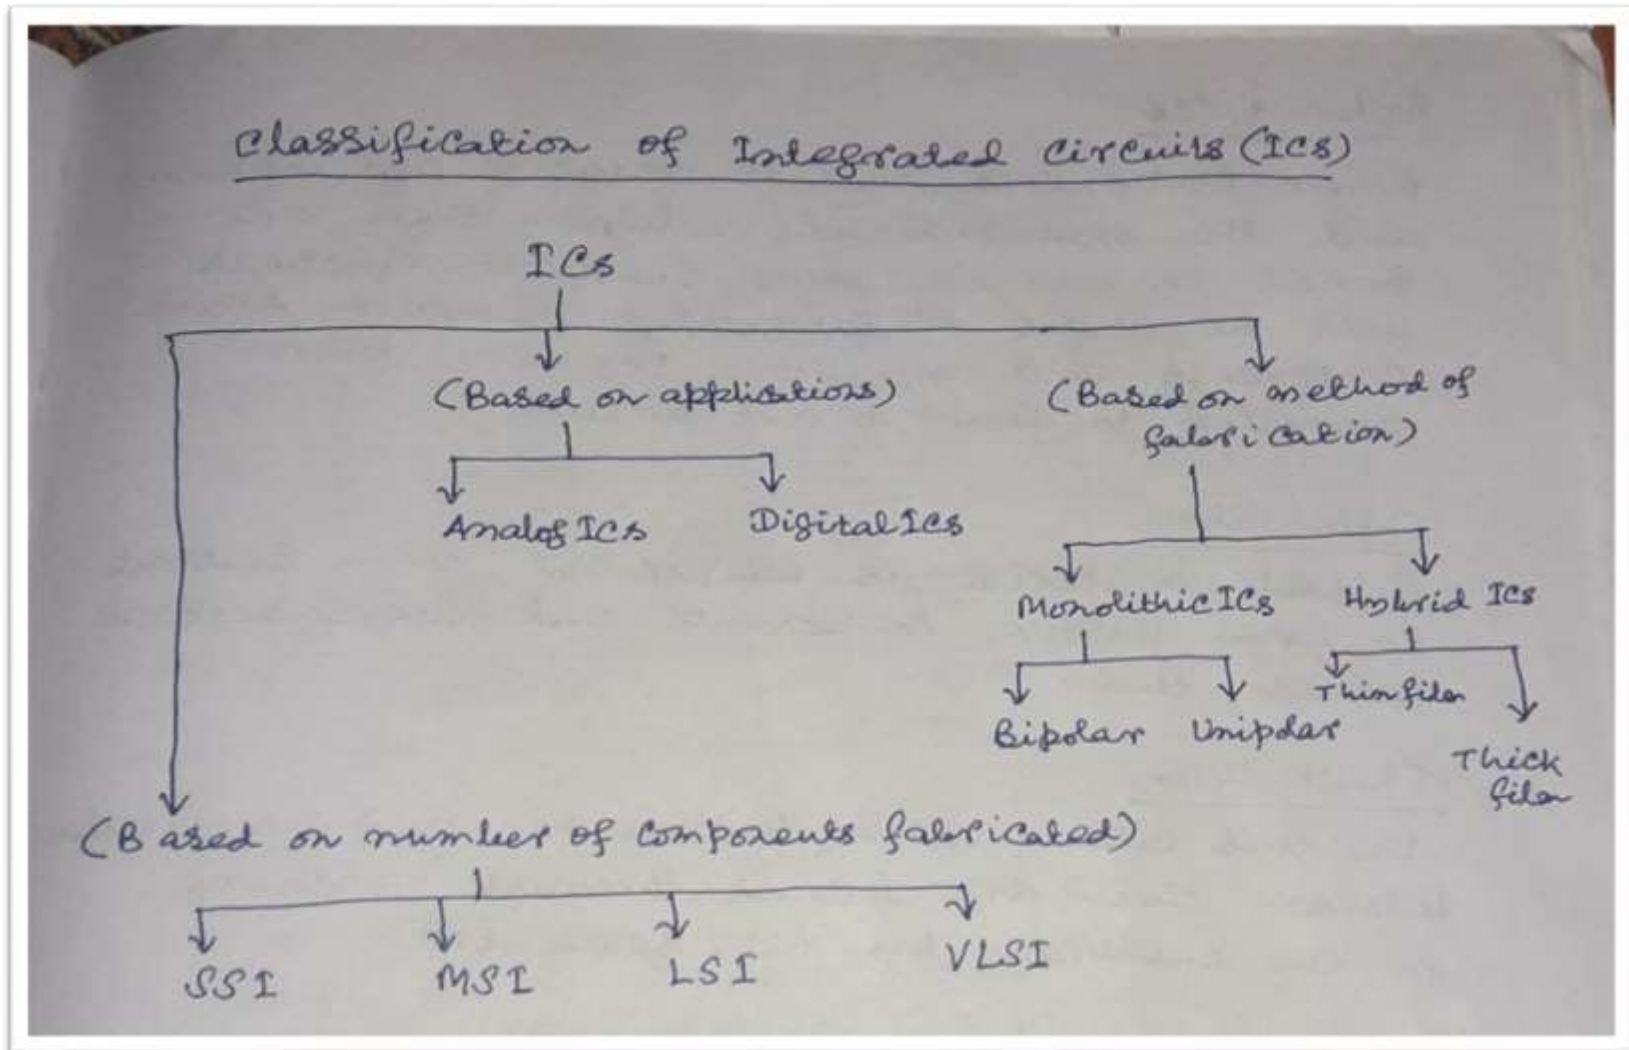 Classification of Integrated Circuits (ICs)
ICs
(Based on applications)
(Based on method of
fabrication)
Analog ICs
Digital ICs
Monolithic ICs
Hybrid ICs
Bipolar
Unipolar
Thin film
Thick
film
(Based on number of components fabricated)
SSI
MSI
LSI
VLSI